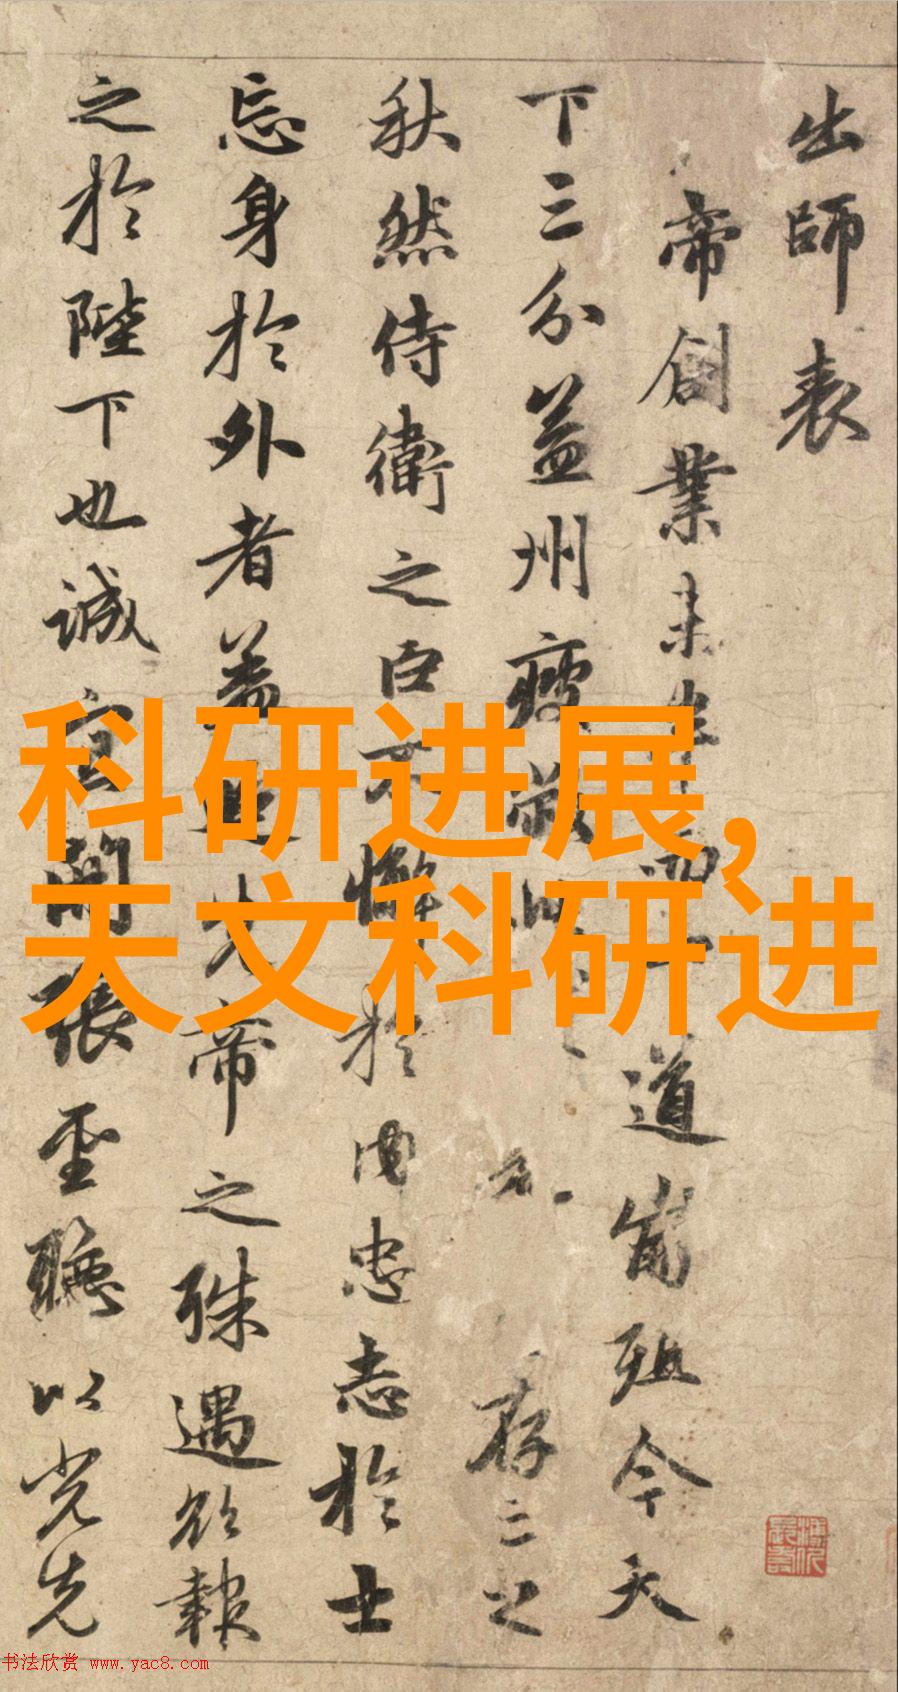 出師表
帝創業未半而道崩殂今天
下三分益州疲敝存亡之
秋然侍衛之臣不懈於内忠志於士
忘身於外者蓋追先帝之殊遇欲報
之於陛下也誠宜開張聖聽以光先
科研进展,
天文科研进
书法欣赏 www.yac8.com